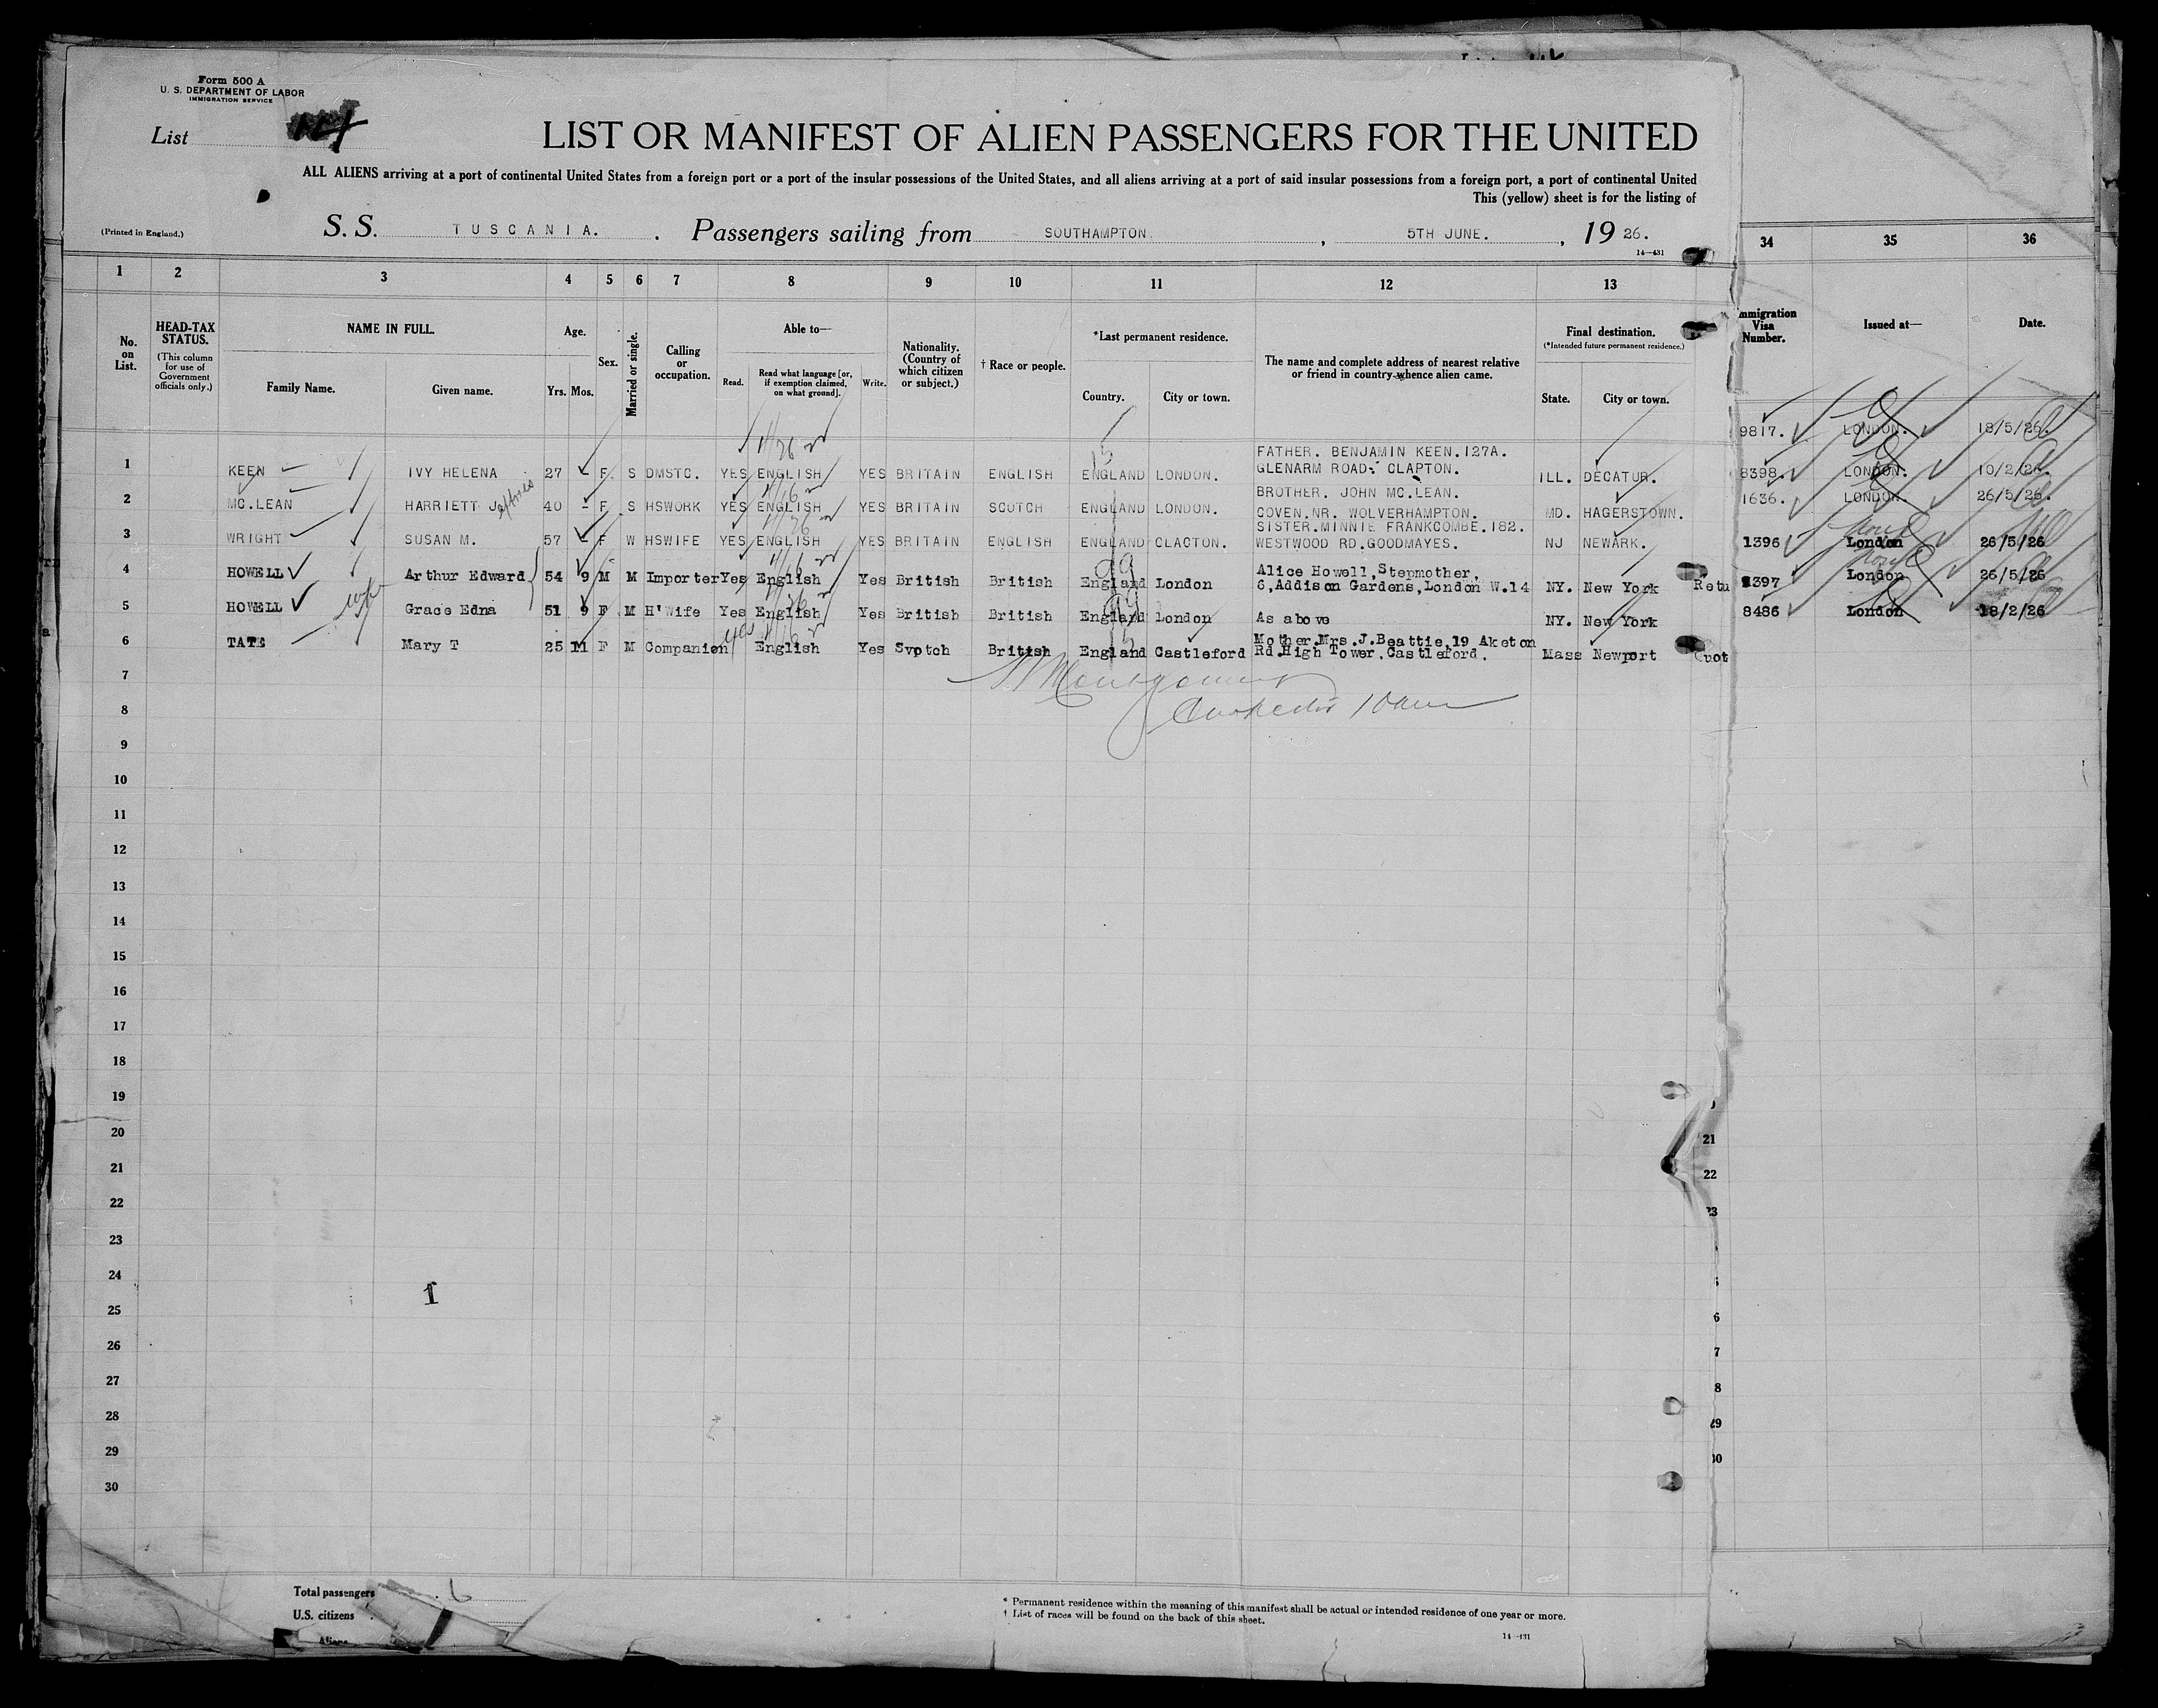 Form 500 A
U. S. DEPARTMENT OF LABOR
IMMIGRATION SERVICE
List
LIST OR MANIFEST OF ALIEN PASSENGERS FOR THE UNITED
ALL ALIENS arriving at a port of continental United States from a foreign port or a port of the insular possessions of the United States, and all aliens arriving at a port of said insular possessions from a foreign port, a port of continental United
This (yellow) sheet is for the listing of
(Printed in England.)
S. S. TUSCANIA. . Passengers sailing from SOUTHAMPTON. , 5TH JUNE. , 19 26.
14-431
1 2 3 4 5 6 7 8 9 10 11 12 13 34 35 36
No. on List.
HEAD-TAX STATUS.
(This column for use of Government officials only.)
NAME IN FULL.
Family Name. Given name.
Age.
Yrs. Mos.
Sex.
Married or single.
Calling or occupation.
Able to—
Read. Read what language [or, if exemption claimed, on what ground]. Write.
Nationality. (Country of which citizen or subject.)
† Race or people.
*Last permanent residence.
Country. City or town.
The name and complete address of nearest relative or friend in country whence alien came.
Final destination.
(*Intended future permanent residence.)
State. City or town.
mmigration Visa Number.
Issued at—
Date.
9817. LONDON. 18/5/26.
FATHER. BENJAMIN KEEN.127A.
1 KEEN IVY HELENA 27 - F S DMSTC. YES ENGLISH YES BRITAIN ENGLISH ENGLAND LONDON. GLENARM ROAD. CLAPTON. ILL. DECATUR. 8398. LONDON. 10/2/26.
BROTHER. JOHN MC.LEAN.
2 MC.LEAN HARRIETT J. 40 - F S HSWORK YES ENGLISH YES BRITAIN SCOTCH ENGLAND LONDON. COVEN.NR. WOLVERHAMPTON. MD. HAGERSTOWN. 1636. LONDON. 26/5/26.
SISTER.MINNIE FRANKCOMBE.182.
3 WRIGHT SUSAN M. 57 - F W HSWIFE YES ENGLISH YES BRITAIN ENGLISH ENGLAND CLACTON. WESTWOOD RD.GOODMAYES. NJ NEWARK. 1396 London 26/5/26
Alice Howell,Stepmother,
4 HOWELL Arthur Edward 54 9 M M Importer Yes English Yes British British England London 6,Addison Gardens,London W.14 NY. New York Retu 1397 London 26/5/26
5 HOWELL wife Grace Edna 51 9 F M H'Wife Yes English Yes British British England London As above NY. New York 8486 London 18/2/26
Mother.Mrs.J.Beattie,19 Aketon
6 TATE Mary T 25 11 F M Companion yes English Yes Svotch British England Castleford Rd.High Tower.Castleford. Mass Newport Quot
7
8
9
10
11
12
13
14
15
16
17
18
19
20
21 21
22 22
23 23
24
25
26 6
27 7
28 8
29 29
30 30
1
Total passengers 6
U.S. citizens
Aliens
* Permanent residence within the meaning of this manifest shall be actual or intended residence of one year or more.
† List of races will be found on the back of this sheet.
14-431